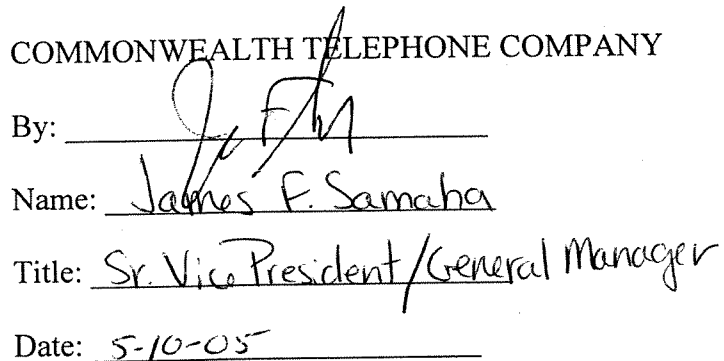 COMMONWEALTH TELEPHONE COMPANY
By:
Name: James F. Samaha
Title: Sr. Vice President/General Manager
Date: 5-10-05